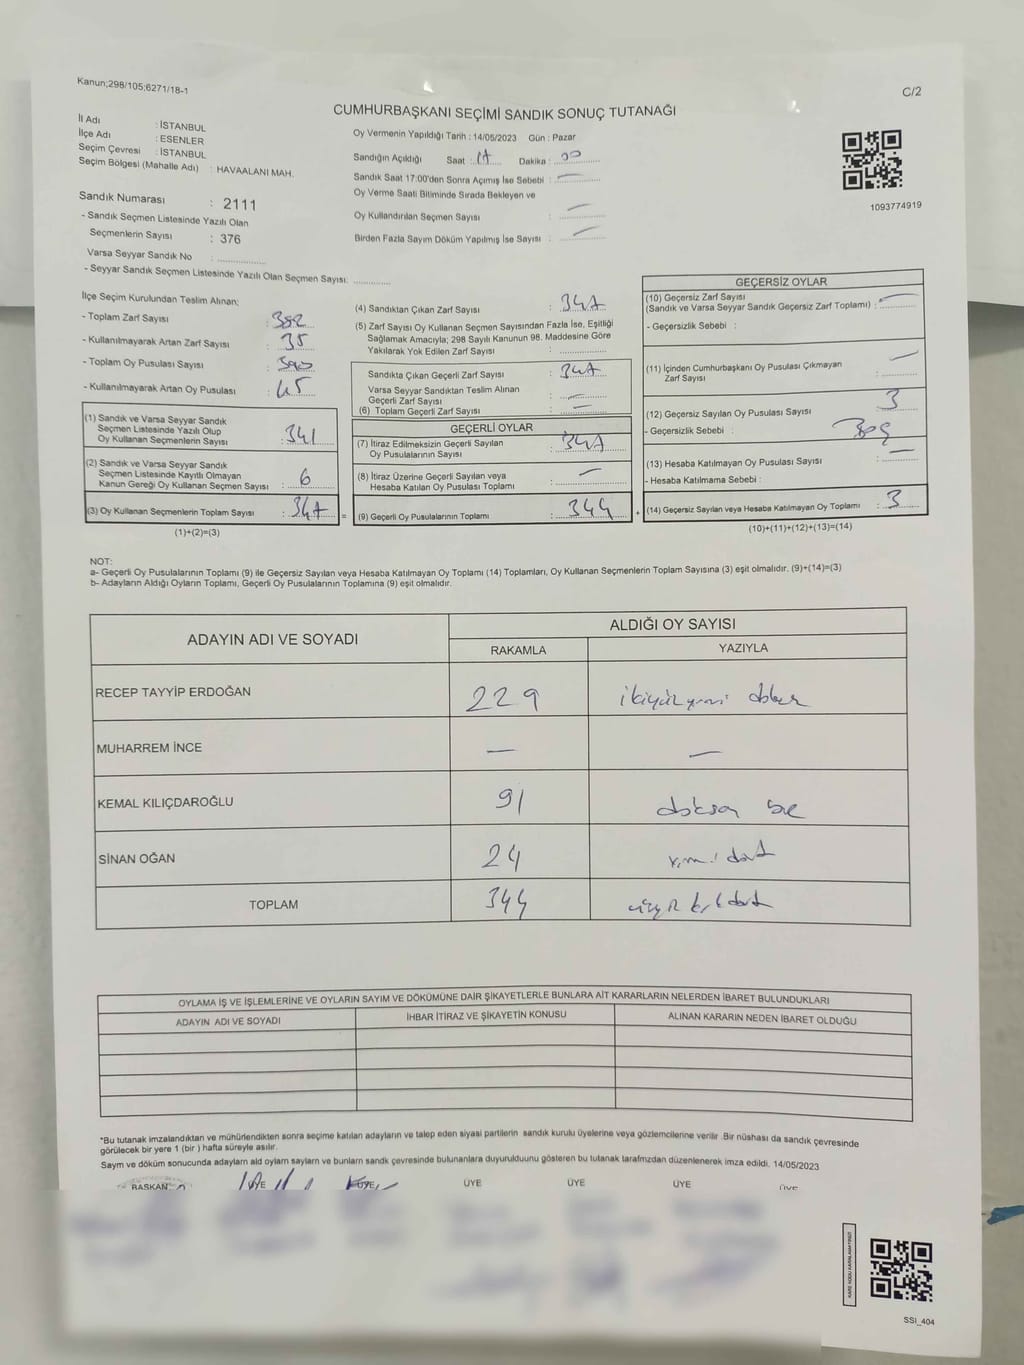 Kanun;298/105;6271/18-1
C/2
CUMHURBAŞKANI SEÇİMİ SANDIK SONUÇ TUTANAĞI
İl Adı : İSTANBUL
İlçe Adı : ESENLER
Seçim Çevresi : İSTANBUL
Seçim Bölgesi (Mahalle Adı) : HAVAALANI MAH.
Sandık Numarası : 2111
- Sandık Seçmen Listesinde Yazılı Olan
Seçmenlerin Sayısı : 376
Varsa Seyyar Sandık No :
- Seyyar Sandık Seçmen Listesinde Yazılı Olan Seçmen Sayısı:
Oy Vermenin Yapıldığı Tarih : 14/05/2023 Gün : Pazar
Sandığın Açıldığı Saat : 17 Dakika : 00
Sandık Saat 17:00'den Sonra Açımış İse Sebebi : —
Oy Verme Saati Bitiminde Sırada Bekleyen ve
Oy Kullandırılan Seçmen Sayısı : —
Birden Fazla Sayım Döküm Yapılmış İse Sayısı : —
1093774919
İlçe Seçim Kurulundan Teslim Alınan;
- Toplam Zarf Sayısı : 382
- Kullanılmayarak Artan Zarf Sayısı : 35
- Toplam Oy Pusulası Sayısı :
- Kullanılmayarak Artan Oy Pusulası : 45
(1) Sandık ve Varsa Seyyar Sandık
Seçmen Listesinde Yazılı Olup
Oy Kullanan Seçmenlerin Sayısı : 341
(2) Sandık ve Varsa Seyyar Sandık
Seçmen Listesinde Kayıtlı Olmayan
Kanun Gereği Oy Kullanan Seçmen Sayısı : 6
(3) Oy Kullanan Seçmenlerin Toplam Sayısı : 347 =
(1)+(2)=(3)
(4) Sandıktan Çıkan Zarf Sayısı : 347
(5) Zarf Sayısı Oy Kullanan Seçmen Sayısından Fazla İse, Eşitliği
Sağlamak Amacıyla; 298 Sayılı Kanunun 98. Maddesine Göre
Yakılarak Yok Edilen Zarf Sayısı :
Sandıkta Çıkan Geçerli Zarf Sayısı : 347
Varsa Seyyar Sandıktan Teslim Alınan
Geçerli Zarf Sayısı : —
(6) Toplam Geçerli Zarf Sayısı : —
GEÇERLİ OYLAR
(7) İtiraz Edilmeksizin Geçerli Sayılan
Oy Pusulalarının Sayısı : 347
(8) İtiraz Üzerine Geçerli Sayılan veya
Hesaba Katılan Oy Pusulası Toplamı : —
(9) Geçerli Oy Pusulalarının Toplamı : 344 +
GEÇERSİZ OYLAR
(10) Geçersiz Zarf Sayısı
(Sandık ve Varsa Seyyar Sandık Geçersiz Zarf Toplamı) : —
- Geçersizlik Sebebi :
(11) İçinden Cumhurbaşkanı Oy Pusulası Çıkmayan
Zarf Sayısı : —
(12) Geçersiz Sayılan Oy Pusulası Sayısı : 3
- Geçersizlik Sebebi : Boş
(13) Hesaba Katılmayan Oy Pusulası Sayısı : —
- Hesaba Katılmama Sebebi :
(14) Geçersiz Sayılan veya Hesaba Katılmayan Oy Toplamı : 3
(10)+(11)+(12)+(13)=(14)
NOT:
a- Geçerli Oy Pusulalarının Toplamı (9) ile Geçersiz Sayılan veya Hesaba Katılmayan Oy Toplamı (14) Toplamları, Oy Kullanan Seçmenlerin Toplam Sayısına (3) eşit olmalıdır. (9)+(14)=(3)
b- Adayların Aldığı Oyların Toplamı, Geçerli Oy Pusulalarının Toplamına (9) eşit olmalıdır.
ADAYIN ADI VE SOYADI
ALDIĞI OY SAYISI
RAKAMLA YAZIYLA
RECEP TAYYİP ERDOĞAN 229 ikiyüzyirmi dokuz
MUHARREM İNCE — —
KEMAL KILIÇDAROĞLU 91 doksan bir
SİNAN OĞAN 24 yirmi dört
TOPLAM 344 üçyüz kırk dört
OYLAMA İŞ VE İŞLEMLERİNE VE OYLARIN SAYIM VE DÖKÜMÜNE DAİR ŞİKAYETLERLE BUNLARA AİT KARARLARIN NELERDEN İBARET BULUNDUKLARI
ADAYIN ADI VE SOYADI İHBAR İTİRAZ VE ŞİKAYETİN KONUSU ALINAN KARARIN NEDEN İBARET OLDUĞU
*Bu tutanak imzalandıktan ve mühürlendikten sonra seçime katılan adayların ve talep eden siyasi partilerin sandık kurulu üyelerine veya gözlemcilerine verilir .Bir nüshası da sandık çevresinde
görülecek bir yere 1 (bir ) hafta süreyle asılır.
Sayım ve döküm sonucunda adayların aldı oyların sayıları ve bunların sandık çevresinde bulunanlara duyurulduunu gösteren bu tutanak tarafımzdan düzenlenerek imza edildi. 14/05/2023
BAŞKAN ÜYE ÜYE ÜYE ÜYE ÜYE ÜYE
KARE KODU KARALAMAYINIZ!
SSI_404